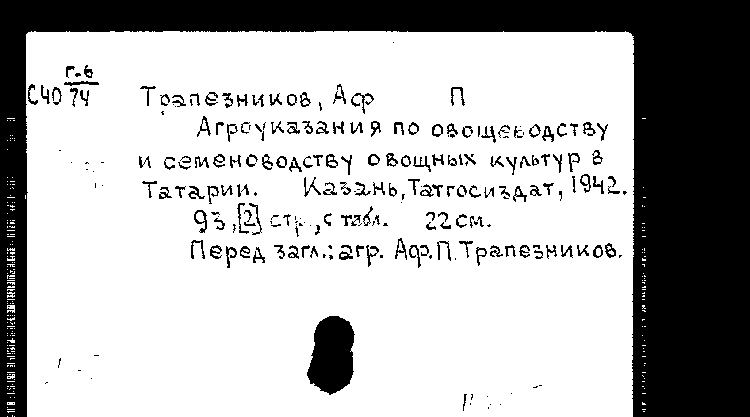 Г-6
С40 74 Трапезников, Аф П
Агроуказания по овощеводству
и семеноводству овощных культур в
Татарии. Казань, Татгосиздат, 1942.
93, [2] стр., с табл. 22 см.
Перед загл.: агр. Аф. П. Трапезников.